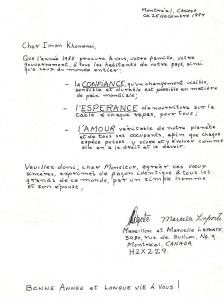 Montréal, CANADA
ce 25 décembre 1987
Cher Imam Khomeni,
Que l'année 1988 procure à vous, votre famille, votre
gouvernement, à tous les habitants de votre pays, ainsi
qu'à ceux du monde entier:
- la CONFIANCE, qu'un changement visible,
sensible et durable est possible en matière
de paix mondiale;
- l'ESPERANCE de nourriture sur la
table à chaque repas, pour tous;
- l'AMOUR véritable de notre planète
et de tous ses occupants, afin que chaque
espèce puisse y vivre et y évoluer comme
elle en a le droit et le devoir.
Veuillez donc, cher Monsieur, agréer ces voeux
sincères, exprimés de façon identique à tous les
grands de ce monde, par un simple homme
et son épouse,
Marcelle Laporte
et Marcelle
rue de Bullion, No.
Montréal, CANADA
H2X 2Z9.
BONNE ANNEE et LONGUE VIE à VOUS!